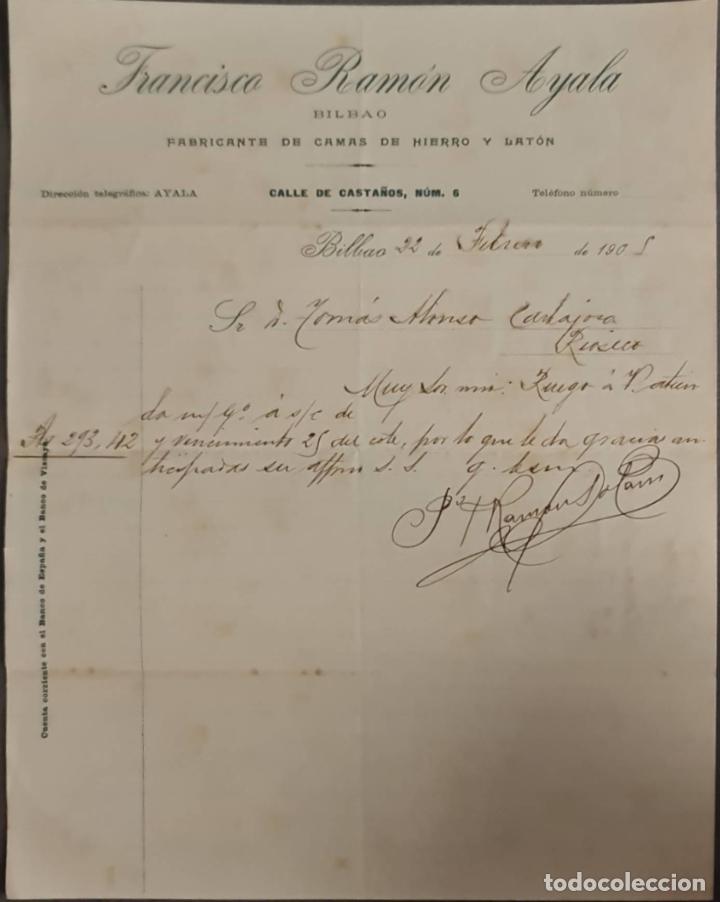 Francisco Ramón Ayala
BILBAO
FABRICANTE DE CAMAS DE HIERRO Y LATÓN
Dirección telegráfica: AYALA CALLE DE CASTAÑOS, NÚM. 6 Teléfono número
Bilbao 22 de Febrero de 1905
Sr. D. Tomás Alonso Carbajosa
Rioseco
Muy Sor. mio: Ruego á V. atien
da m/ gº á s/c de
Pts 293,42 y vencimiento 25 del cte, por lo que le da gracias an
ticipadas su affmo S. S. q. b. s. m.
Cuenta corriente con el Banco de España y el Banco de Vizcaya
todocoleccion
todocoleccion.net